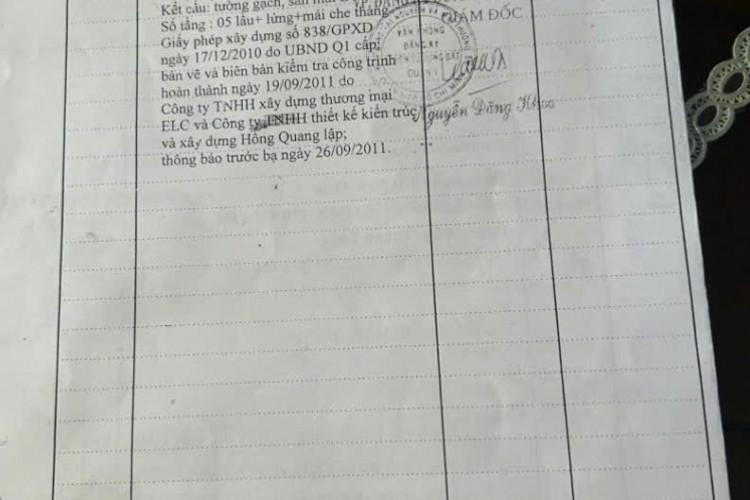 Kết cấu: tường gạch, sàn mái
Số tầng : 05 lầu+ lửng+mái che thang
GIÁM ĐỐC
Giấy phép xây dựng số 838/GPXD
ngày 17/12/2010 do UBND Q1 cấp;
bản vẽ và biên bản kiểm tra công trình
hoàn thành ngày 19/09/2011 do
Công ty TNHH xây dựng thương mại
ELC và Công ty TNHH thiết kế kiến trúc
và xây dựng Hồng Quang lập;
thông báo trước bạ ngày 26/09/2011.
VĂN PHÒNG
ĐĂNG KÝ
QUẬN 1
Nguyễn Đăng Khoa